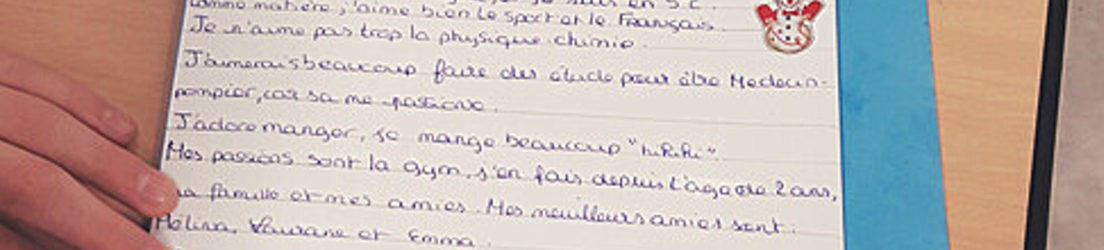 je suis en 5e.
comme matière, j'aime bien le sport et le Français.
Je n'aime pas trop la physique-chimie.
J'aimerais beaucoup faire des étude pour être Medecin-
pompier, car sa me passione.
J'adore manger, je mange beaucoup "hihihi".
Mes passions sont la gym, j'en fais depuis l'age de 2 ans,
ma famille et mes amies. Mes meuilleurs amies sont :
Mélina, et Emma.